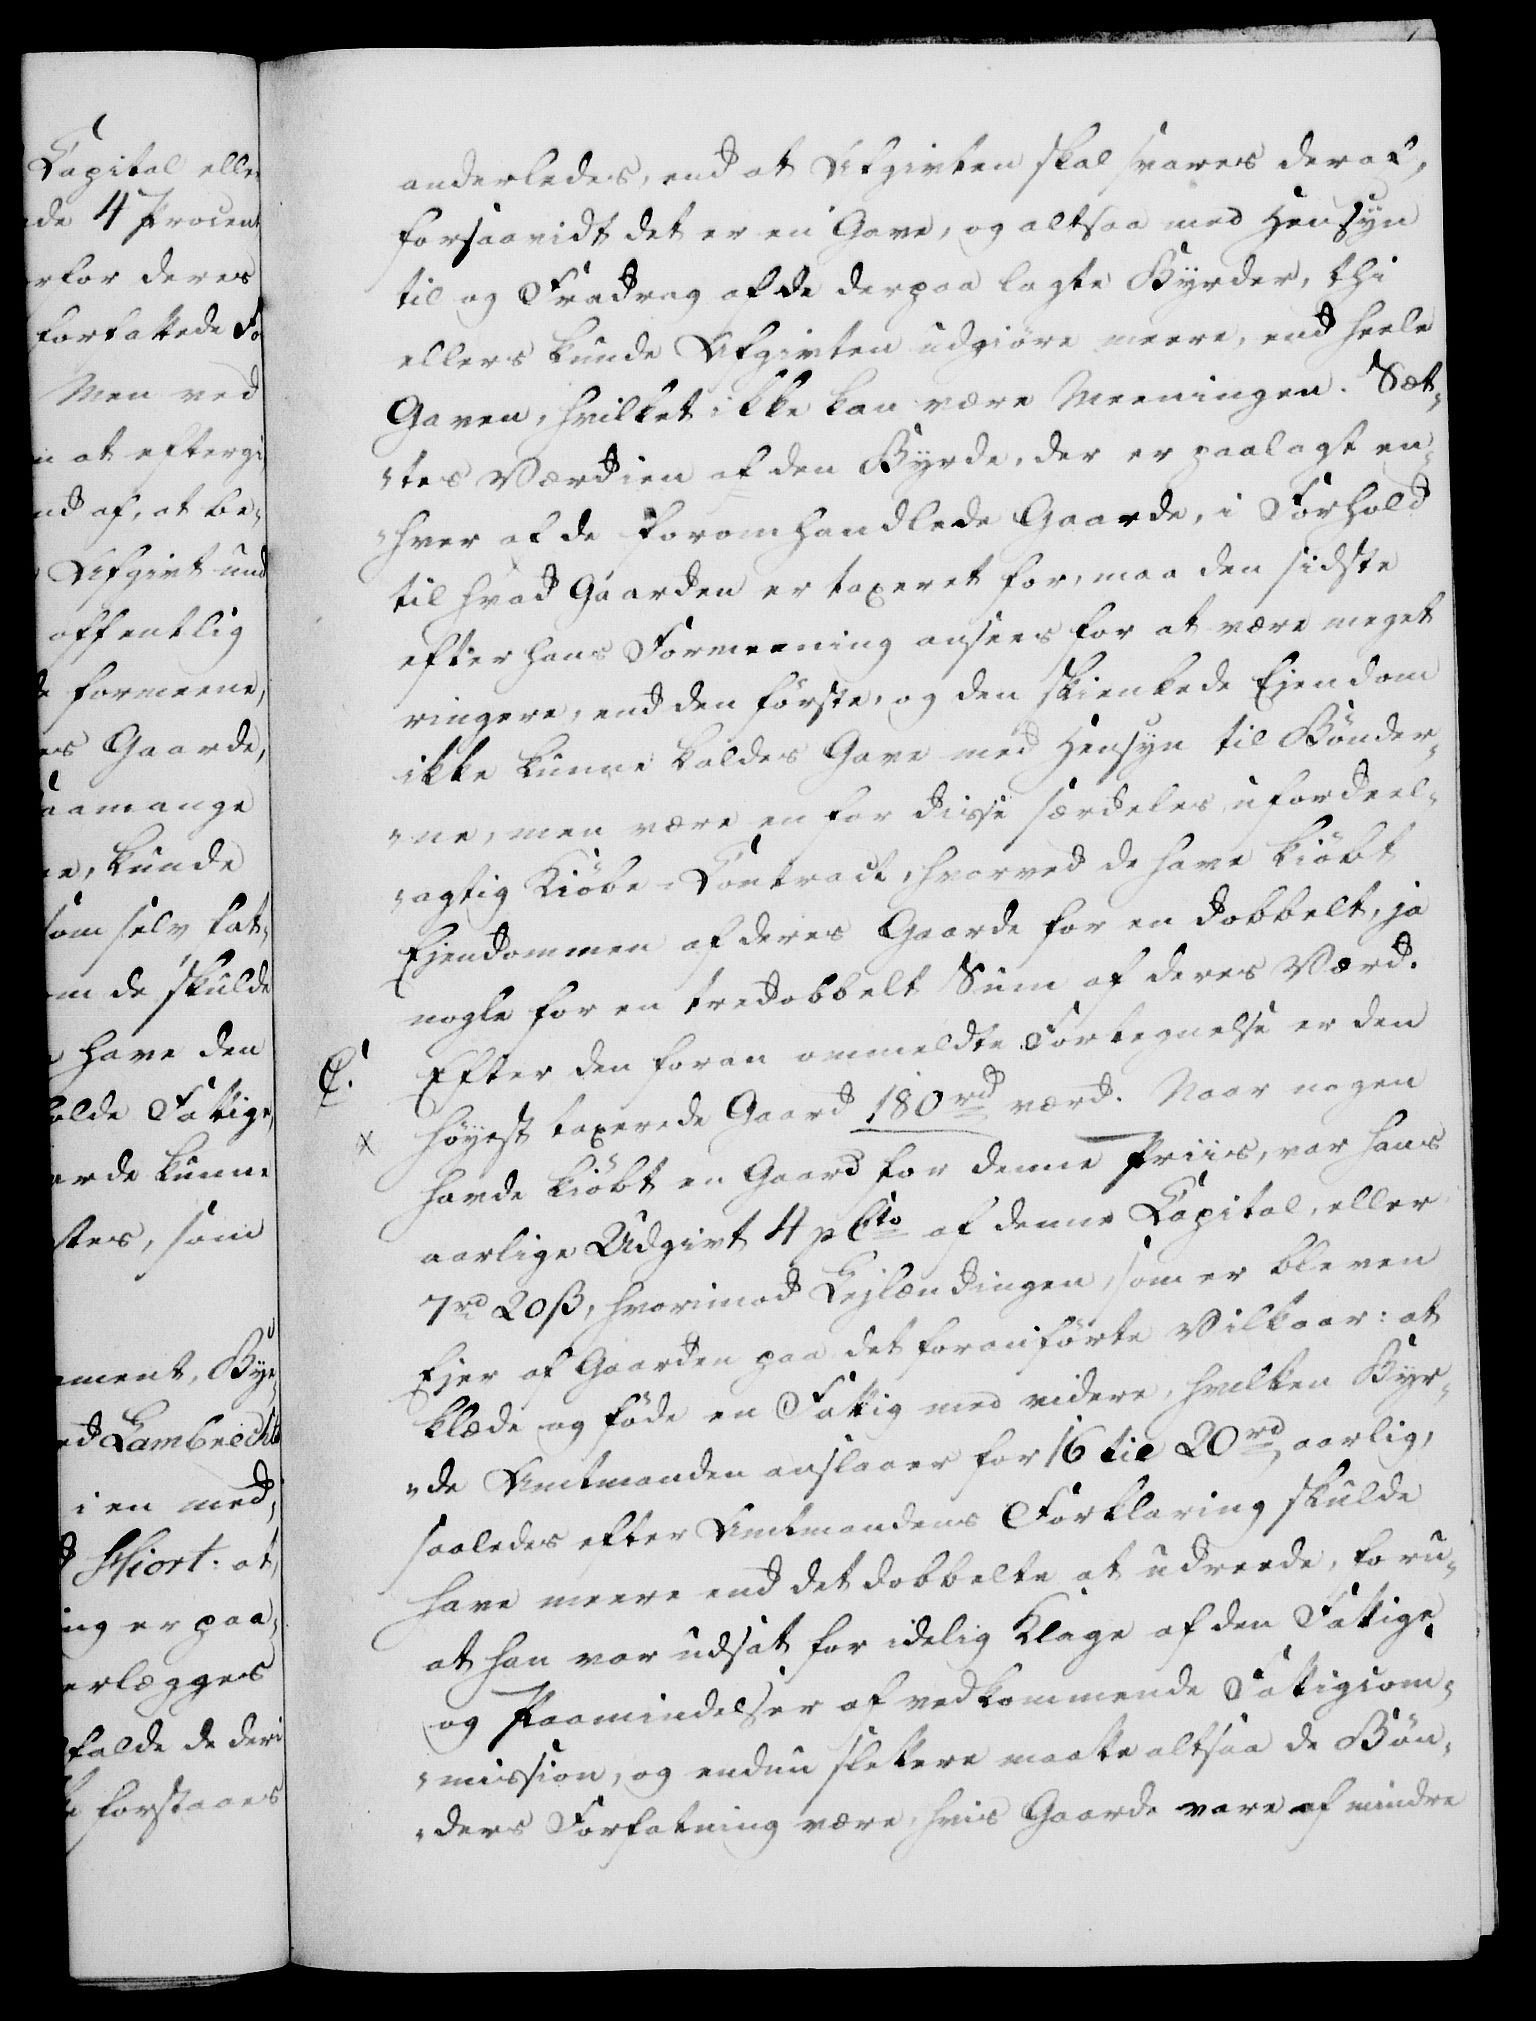 Capital eller
de 4 Procent
for deres
forfattede Fo
Men ved
n at eftergi
nd af, at be-
Afgivt und
offentlig
formeene,
es Gaarde,
aamange
e, kunde
som selv fat-
m de skulde
have den
olde Fattige,
erde kunne
stes, som
ment, Bye-
d Lambrecht
i en med-
Hiort: at,
ing er paa-
erlægges
falde de deri
forstaaes
anderledes, end at Afgivten skal svares deraf,
forsaavidt det er en Gave, og altsaa med Hensyn
til og Fradrag af de derpaa lagte Byrder, thi
ellers kunde Afgivten udgiöre meere, end heele
Gaven, hvilket ikke kan være Meeningen. Sæt-
tes Værdien af den Byrde, der er paalagt en-
hver af de foromhandlede Gaarde, i Forhold
til hvad Gaarden er taxeret for, maa den sidste
efter hans Formeening ansees for at være meget
ringere, end den förste, og den skienkede Ejendom
ikke kunne kaldes Gave med Hensyn til Bönder-
ne, men være en for disse særdeles ufordeel-
agtig Kiöbe-Contract, hvorved de have kiöbt
Ejendommen af deres Gaarde for en dobbelt, ja
nogle for en tredobbelt Sum af deres Værd.
C. Efter den foran ommeldte Fortegnelse er den
x höyest taxerede Gaard 180rd værd. Naar nogen
havde kiöbt en Gaard for denne Priis, var hans
aarlige Udgivt 4 p Cto af denne Capital, eller
7rd 20ß, hvorimod Lejlændingen, som er bleven
Ejer af Gaarden paa det foranförte Vilkaar: at
klæde og föde en Fattig med videre, hvilken Byr-
de Amtmanden anslaaer for 16 til 20rd aarlig,
saaledes efter Amtmandens Forklaring skulde
have meere end det dobbelte at udreede, foru-
at han var udsat for idelig Klage af den Fattige
og Paamindelser af vedkommende Fattigcom-
mission, og endnu slettere maatte altsaa de Bön-
ders Forfatning være, hvis Gaarde vare af mindre